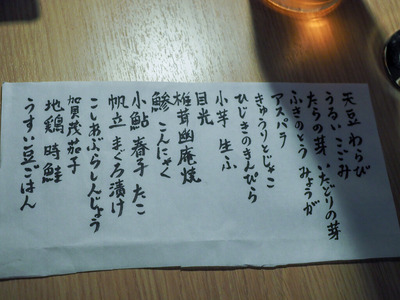 天豆 わらび
うるい こごみ
たらの芽 いたどりの芽
ふきのとう みょうが
アスパラ
きゅうりとじゃこ
ひじきのきんぴら
小芋 生ふ
目光
椎茸幽庵焼
鯵 こんにゃく
小鮎 春子 たこ
帆立 まぐろ漬け
こしあぶらしんじょう
賀茂茄子
地鶏 時鮭
うすい豆ごはん